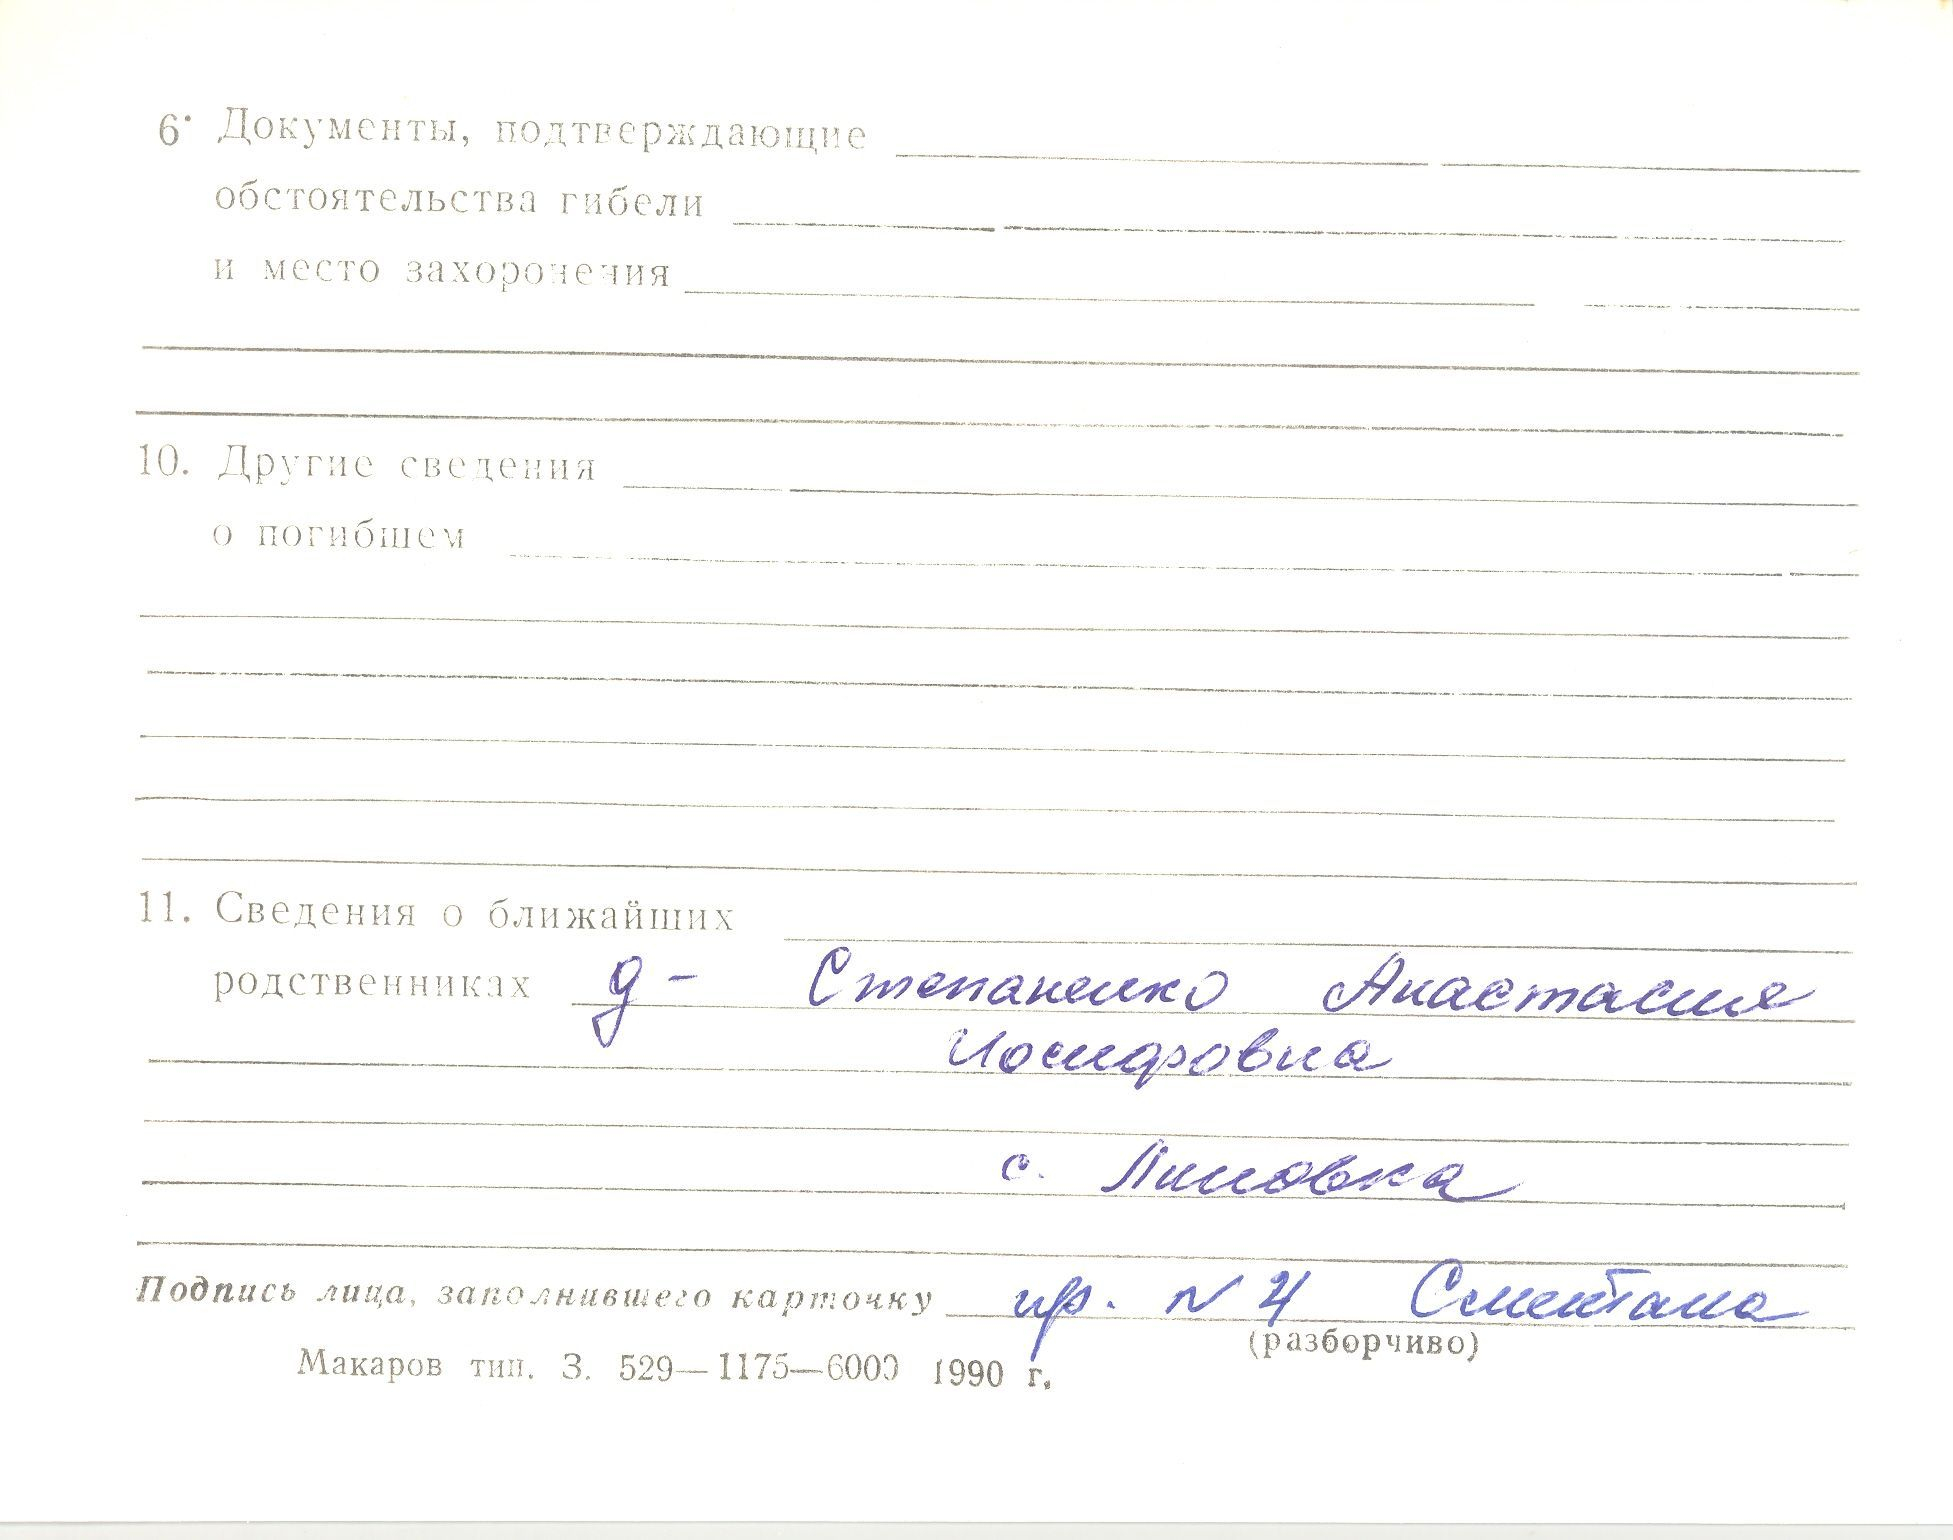 6. Документы, подтверждающие
обстоятельства гибели
и место захоронения
10. Другие сведения
о погибшем
11. Сведения о ближайших
родственниках д - Степаненко Анастасия
Иосифовна
с. Липовка
Подпись лица, заполнившего карточку пр. N 4 Сметана
(разборчиво)
Макаров тип. З. 529—1175—6000 1990 г.